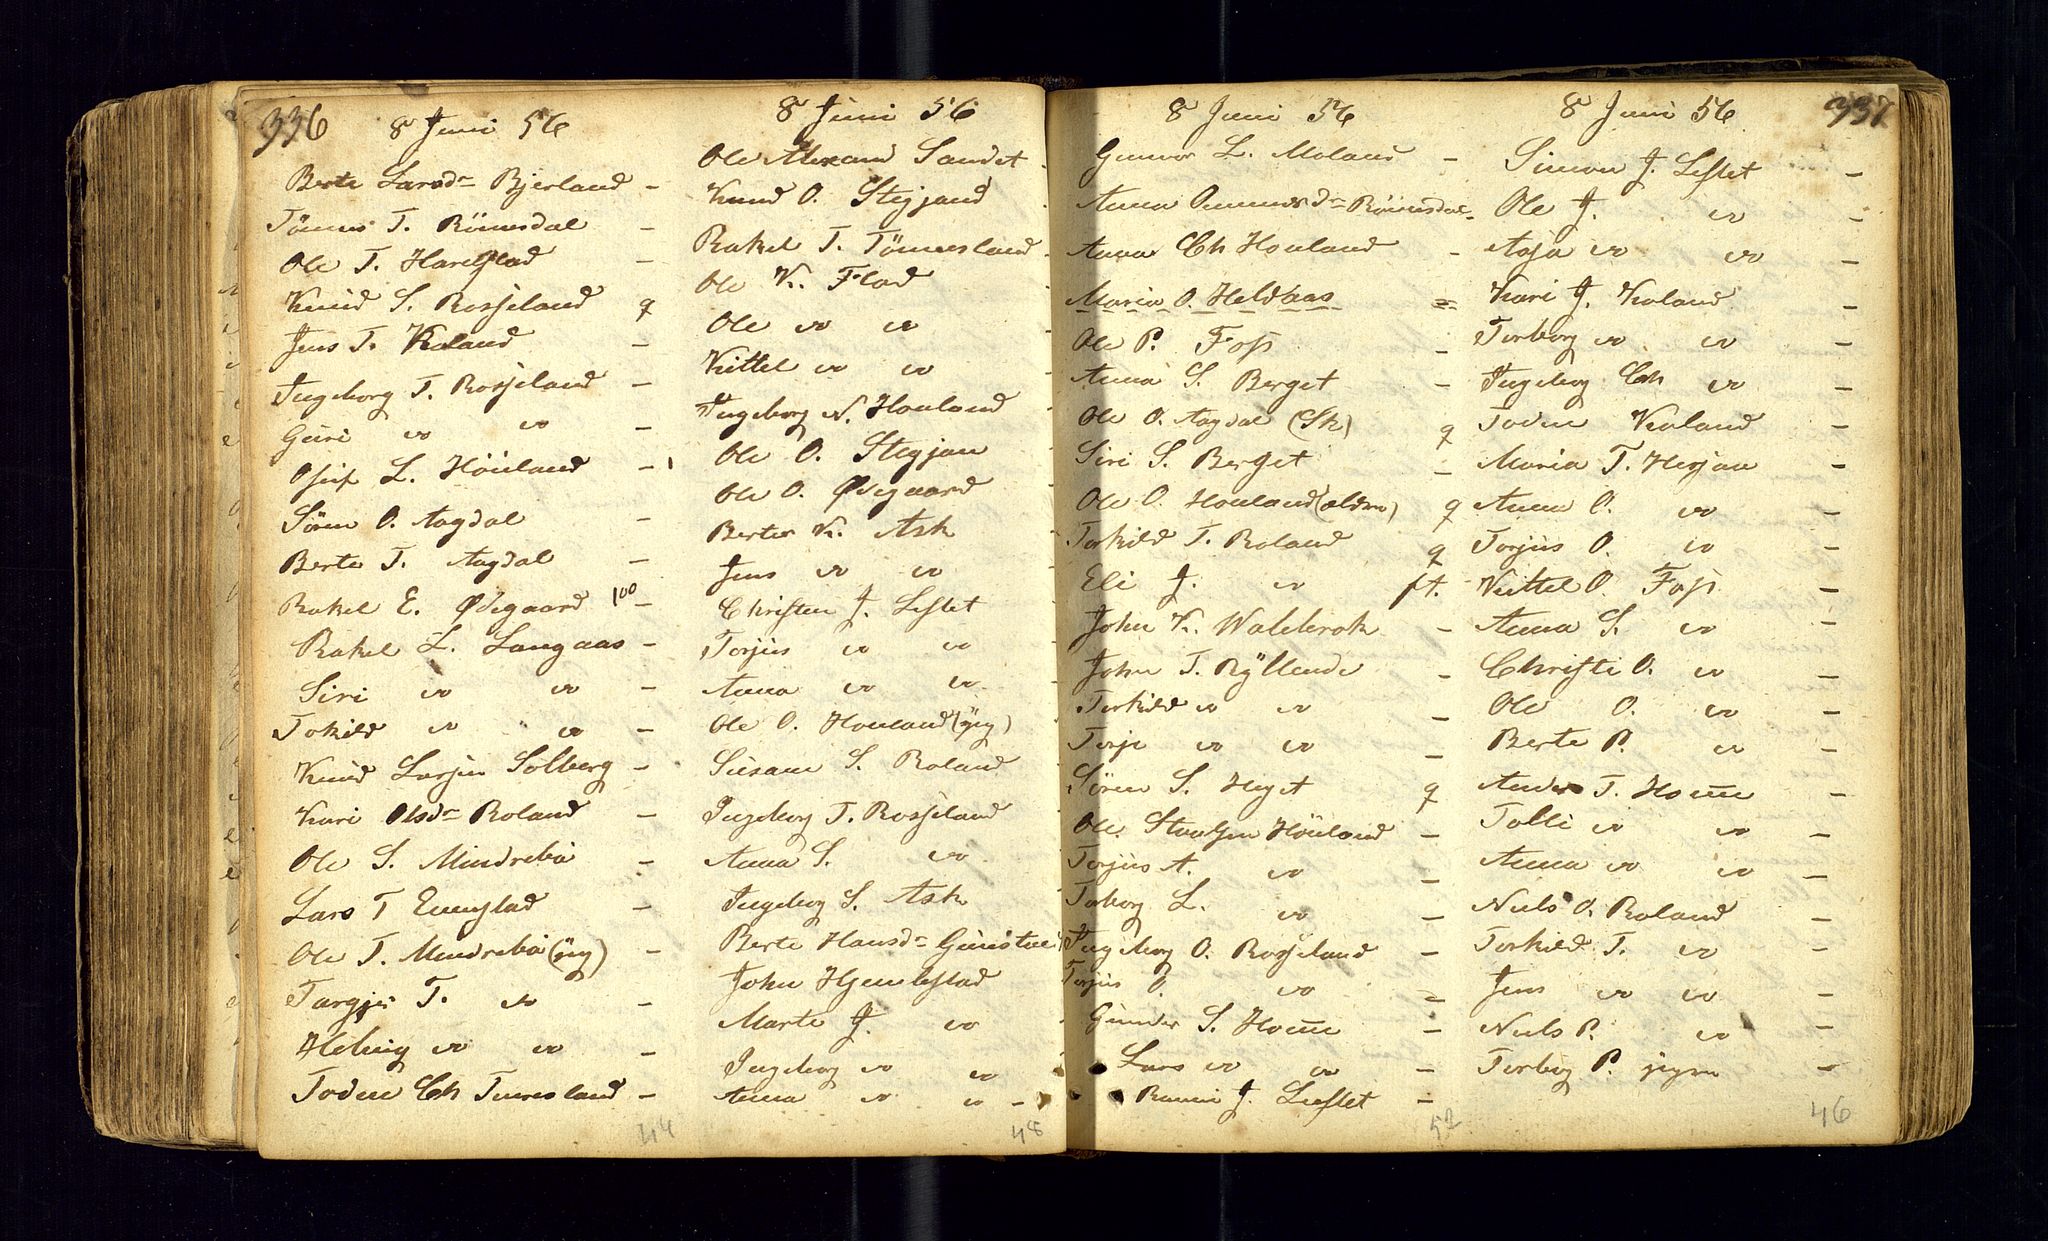 336
8 Juni 56
Berte Larsd Bjerland -
Tönnes T. Römesdal -
Ole T. Harestad -
Knud S. Rosseland q
Jens T. Roland -
Ingeborg T. Rosseland -
Guri " " -
Osuf L. Höuland -
Sören O. Aagdal -
Berte T. Aagdal -
Rakel E. Ødegaard 100 -
Rakel L. Langaas -
Siri " " -
Tokild " " -
Knud Larsen Solberg -
Kari Olsd Roland -
Ole S. Mindrebö -
Lars T Evenstad -
Ole T. Mindrebö (yng) -
Targjer T. " -
Helvig " " -
Toden Ch Tunesland -
44
8 Juni 56
Ole Alexand Sandet
Knud O. Stegjand
Rakel T. Tömmesland
Ole K. Flad
Ole " "
Kittel " "
Ingeborg N. Houland
Ole O. Stegjan
Ole O. Ødegaard
Berte K. Ask
Jens " "
Christen J. Lestet
Torjus " "
Anna " "
Ole O. Houland (yng)
Susane S. Roland
Ingeborg T. Rosseland
Anna S. "
Ingeborg S. Ask
Berte Hansd
John Hjemlestad
Marte J. "
Ingeborg " "
Anna " " -
48
8 Juni 56
Gunvor L. Moland -
Anna Gunnersd Römesdal -
Anna Ch Houland -
Maria O. Heldaas =
Ole P. Foss -
Anna S. Berget -
Ole O. Aagdal (Sk) q
Siri S. Berget -
Ole O. Houland (ældre) q
Torkild T. Roland q
Eli J. " ft.
John K. Waldbrok -
John T. Ryllende -
Torkild " " -
Terje " " -
Sören S. Heget q
Ole Höuland -
Torjus A. " -
Torborg L. " -
Ingeborg O. Rosseland -
Torjus O. " =
Gunder S. Home -
Lars " " -
J. Lustet -
52
337
8 Juni 56
Simon J. Lestet -
Ole J. " -
Aasa " " -
Kari J. Roland -
Torborg " " -
Ingeborg Ch " -
Toden Roland -
Maria T. Hesjaa -
Anna O. " -
Torjus O. " -
Kittel O. Foss -
Anna S. " -
Christi O. " -
Ole O. " -
Berte P. " -
Anders T. Home -
Tolli " " -
Anna " " -
Niels O. Roland -
Torkild T. " -
Jens " " -
Niels P. " -
Torborg P. yngre -
46